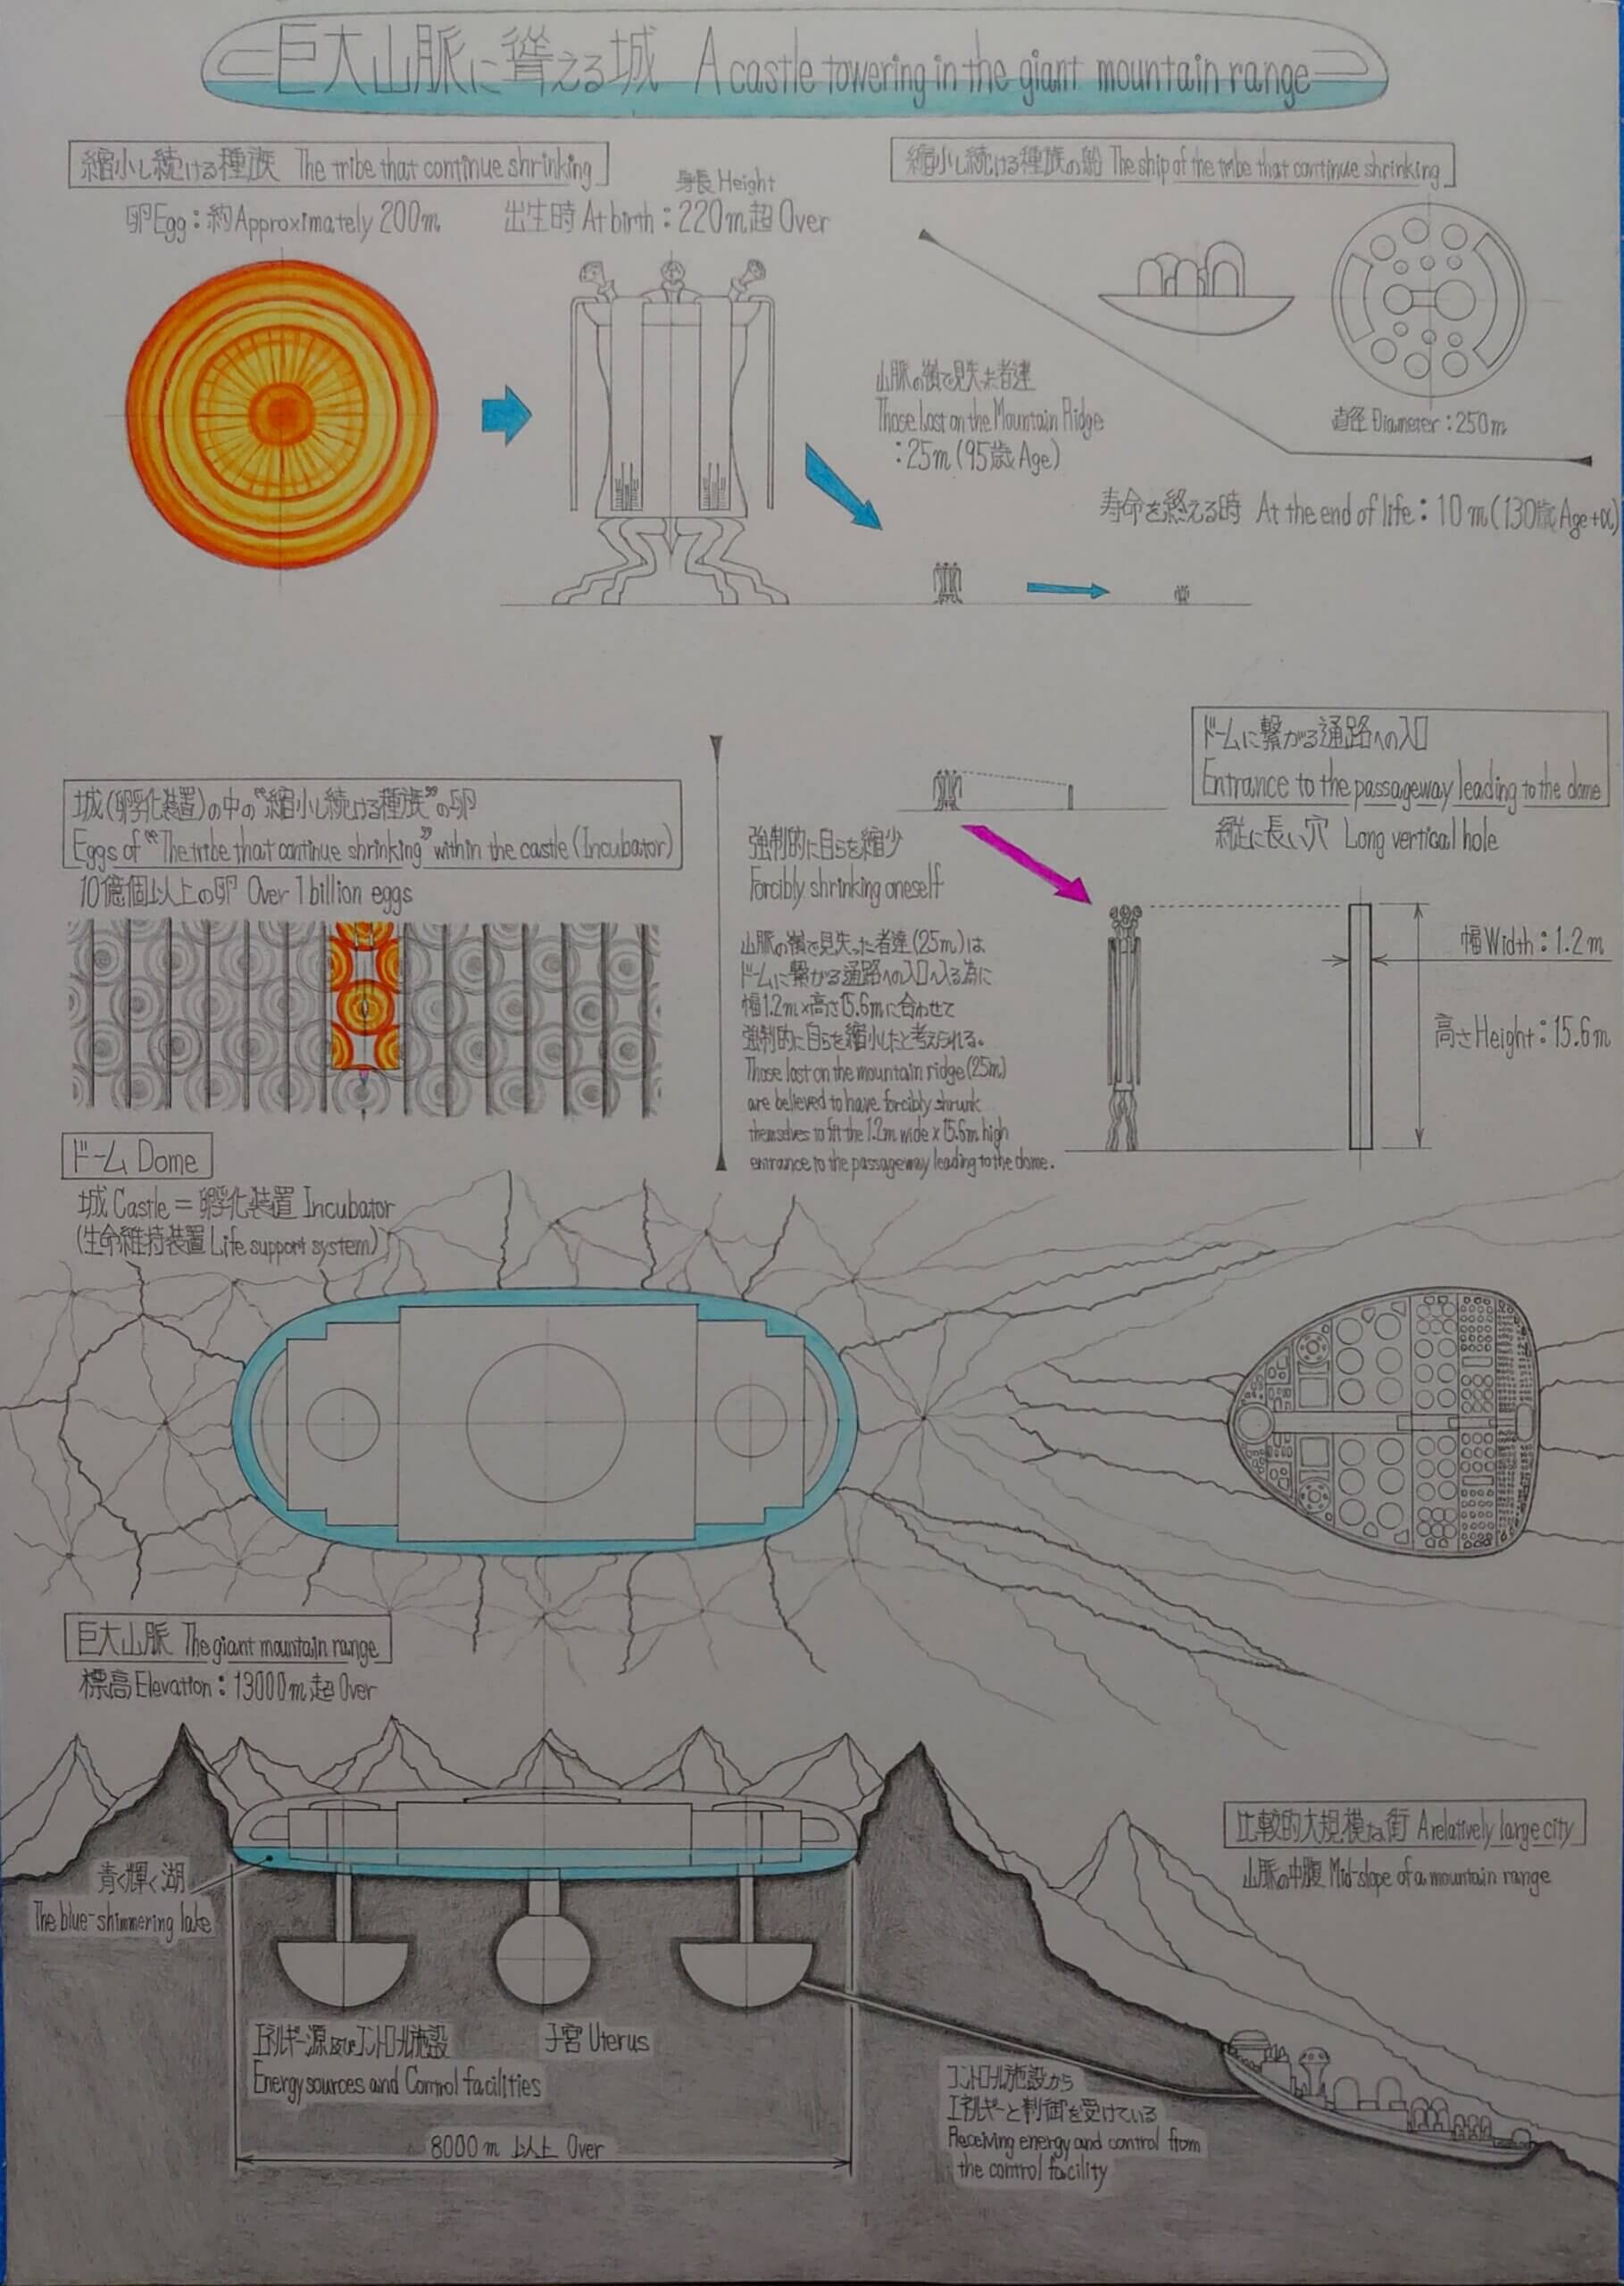 巨大山脈に聳える城 A castle towering in the giant mountain range
縮小し続ける種族 The tribe that continue shrinking
卵 Egg : 約 Approximately 200m
身長 Height
出生時 At birth : 220m超 Over
縮小し続ける種族の船 The ship of the tribe that continue shrinking
直径 Diameter : 250m
山脈の嶺で見失った者達
Those lost on the Mountain Ridge
: 25m (95歳 Age)
寿命を終える時 At the end of life : 10m (130歳 Age+α)
城(孵化装置)の中の“縮小し続ける種族”の卵
Eggs of “The tribe that continue shrinking” within the castle (Incubator)
10億個以上の卵 Over 1 billion eggs
強制的に自らを縮少
Forcibly shrinking oneself
山脈の嶺で見失った者達(25m)は
ドームに繋がる通路への入口へ入る為に
幅1.2m×高さ15.6mに合わせて
強制的に自らを縮小したと考えられる。
Those lost on the mountain ridge (25m)
are believed to have forcibly shrunk
themselves to fit the 1.2m wide x 15.6m high
entrance to the passageway leading to the dome.
ドームに繋がる通路への入口
Entrance to the passageway leading to the dome
縦に長い穴 Long vertical hole
幅 Width : 1.2m
高さ Height : 15.6m
ドーム Dome
城 Castle = 孵化装置 Incubator
(生命維持装置 Life support system)
巨大山脈 The giant mountain range
標高 Elevation : 13000m超 Over
青く輝く湖
The blue-shimmering lake
エネルギー源及びコントロール施設
Energy sources and Control facilities
子宮 Uterus
8000m 以上 Over
コントロール施設から
エネルギーと制御を受けている
Receiving energy and control from
the control facility
比較的大規模な街 A relatively large city
山脈の中腹 Mid-slope of a mountain range